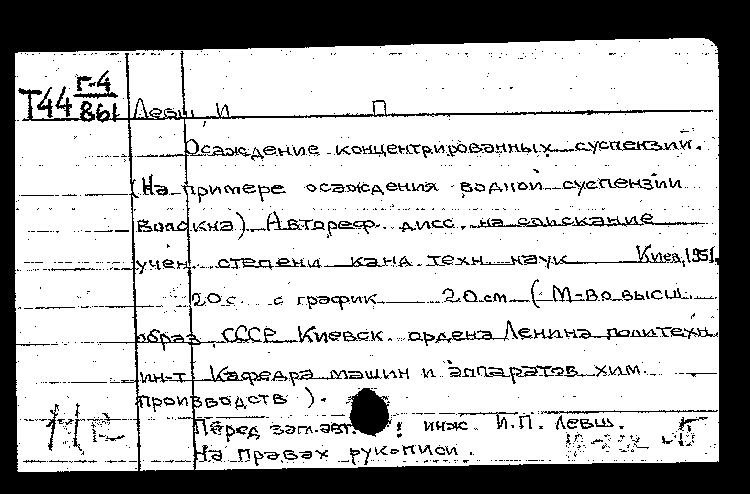 Т44 г-4
861
Левш, И П
Осаждение концентрированных суспензий.
(На примере осаждения водной суспензии
волокна). Автореф. дисс. на соискание
учен. степени канд. техн. наук Киев, 1951.
20 с. с график 20 см (М-во высш.
образ. СССР. Киевск. ордена Ленина политехн.
ин-т Кафедра машин и аппаратов хим.
производств).
Перед загл. авт.: инж. И.П. Левш.
На правах рукописи.